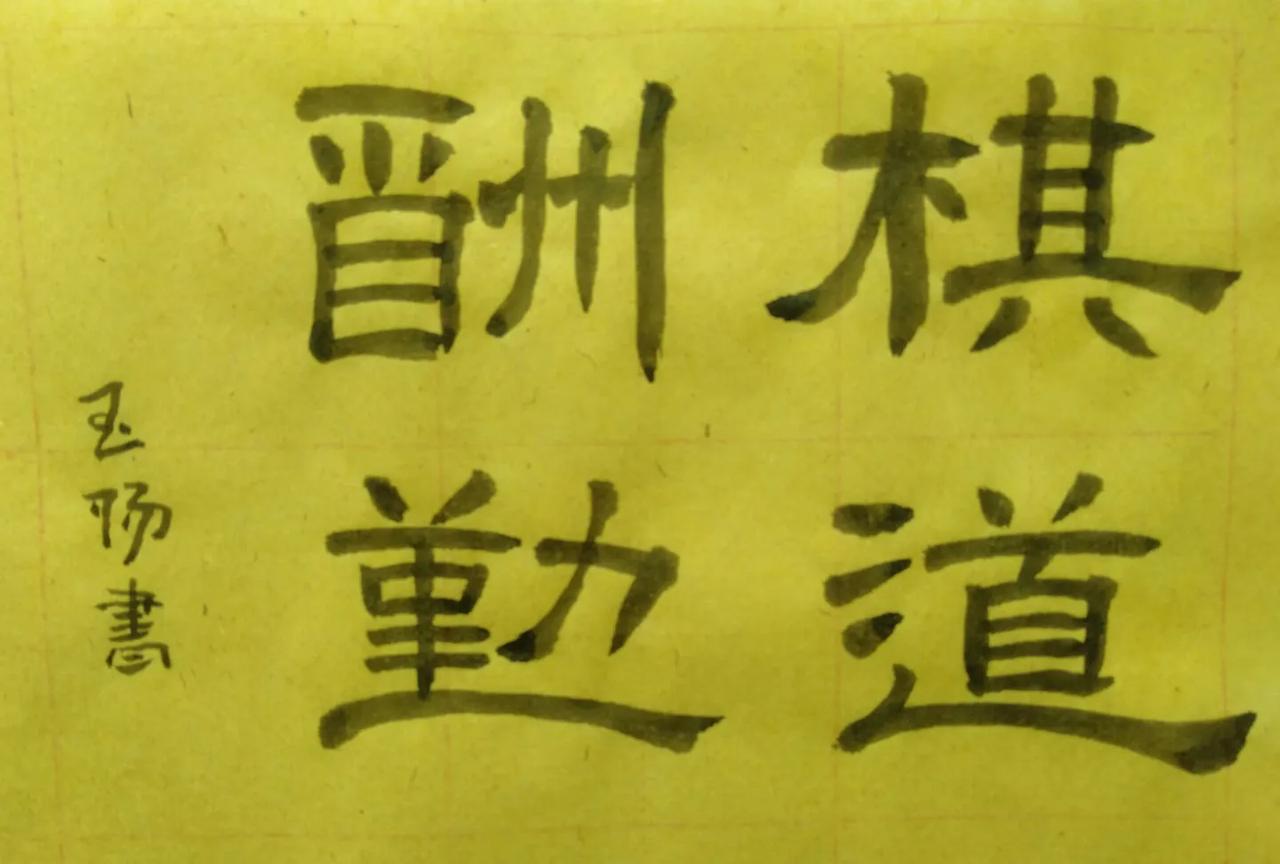 棋道
酬勤
玉陽書